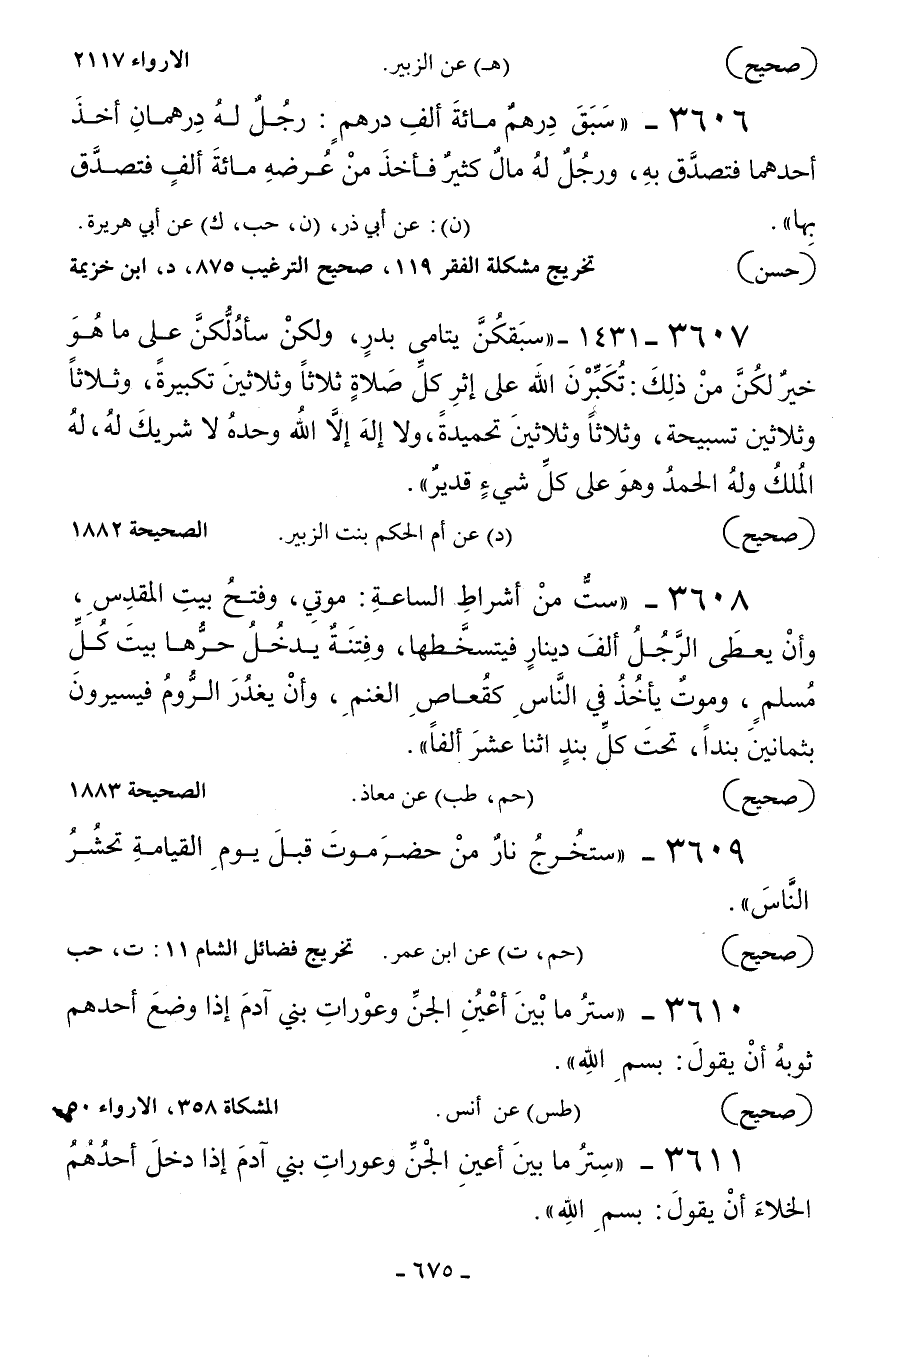 (صحيح) (هـ) عن الزبير. الارواء ٢١١٧
٣٦٠٦ ـ «سَبَقَ دِرهمٌ مـائةَ ألفِ درهمٍ: رجُلٌ لـهُ دِرهمـانِ أخـذَ
أحدهما فتصدَّق بهِ، ورجُلٌ لهُ مالٌ كثيرٌ فـأخذَ منْ عُـرضهِ مـائةَ ألفٍ فتصـدَّق
بها».
(ن): عن أبي ذر، (ن، حب، ك) عن أبي هريرة.
(حسن) تخريج مشكلة الفقر ١١٩، صحيح الترغيب ٨٧٥، د، ابن خزيمة
٣٦٠٧ ـ ١٤٣١ ـ «سبَقكُنَّ يتامى بدرٍ، ولكنْ سأدُلُّكنَّ علـى ما هُـوَ
خيرٌ لكُنَّ منْ ذلِكَ: تُكَبِّرْنَ اللهَ على إثرِ كلِّ صَلاةٍ ثلاثاً وثلاثينَ تكبيرةً، وثـلاثاً
وثلاثين تسبيحة، وثلاثاً وثلاثينَ تحميدةً، ولا إلهَ إلَّا اللهُ وحدهُ لا شريكَ لهُ، لهُ
المُلكُ ولهُ الحمدُ وهوَ على كلِّ شيءٍ قديرٌ».
(صحيح) (د) عن أم الحكم بنت الزبير. الصحيحة ١٨٨٢
٣٦٠٨ ـ «ستٌّ منْ أشراطِ الساعـةِ: موتي، وفتـحُ بيتِ المقدِسِ،
وأنْ يعـطَى الرَّجُـلُ ألفَ دينارٍ فيتسخَّـطها، وفِتنَـةٌ يـدخُـلُ حـرُّهـا بيتَ كُـلِّ
مُسلمٍ، وموتٌ يأخُذُ في النَّاسِ كقُعـاصِ الغنمِ، وأنْ يغدُرَ الـرُّومُ فيسيرونَ
بثمانينَ بنداً، تحتَ كلِّ بندٍ اثنا عشرَ ألفاً».
(صحيح) (حم، طب) عن معاذ. الصحيحة ١٨٨٣
٣٦٠٩ ـ «ستخُـرجُ نارٌ منْ حضـرَمـوتَ قبـلَ يـومِ القيامـةِ تحْشُـرُ
النَّاسَ».
(صحيح) (حم، ت) عن ابن عمر. تخريج فضائل الشام ١١: ت، حب
٣٦١٠ ـ «سترُ ما بْينَ أعْينِ الجنِّ وعوْراتِ بني آدمَ إذا وضعَ أحدهم
ثوبهُ أنْ يقولَ: بسمِ اللهِ».
(صحيح) (طس) عن أنس. المشكاة ٣٥٨، الارواء
٣٦١١ ـ «سِترُ ما بينَ أعينِ الجنِّ وعوراتِ بني آدمَ إذا دخلَ أحدُهُمُ
الخلاءَ أنْ يقولَ: بسمِ اللهِ».
ـ ٦٧٥ ـ